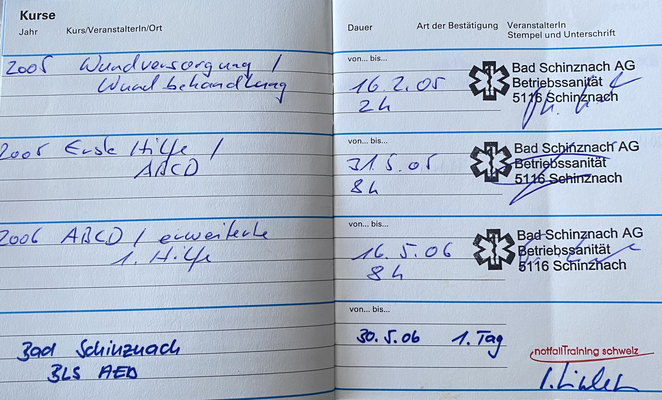 Kurse
Jahr Kurs/VeranstalterIn/Ort
Dauer Art der Bestätigung VeranstalterIn
Stempel und Unterschrift
2005 Wundversorgung /
Wundbehandlung
von... bis...
16.2.05
2h
Bad Schinznach AG
Betriebssanität
5116 Schinznach
2005 Erste Hilfe /
ABCD
von... bis...
31.5.05
8h
Bad Schinznach AG
Betriebssanität
5116 Schinznach
2006 ABCD / erweiterte
1. Hilfe
von... bis...
16.5.06
8h
Bad Schinznach AG
Betriebssanität
5116 Schinznach
Bad Schinznach
BLS AED
von... bis...
30.5.06 1. Tag
notfallTraining schweiz